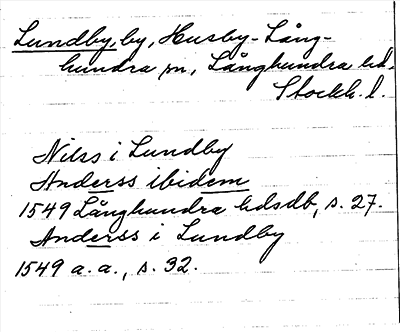 Lundby, by, Husby-Lång-
hundra sn, Långhundra hd,
Stockh. l.
Nilss i Lundby
Anderss ibidem
1549 Långhundra hdsdb, s. 27.
Anderss i Lundby
1549 a.a., s. 32.